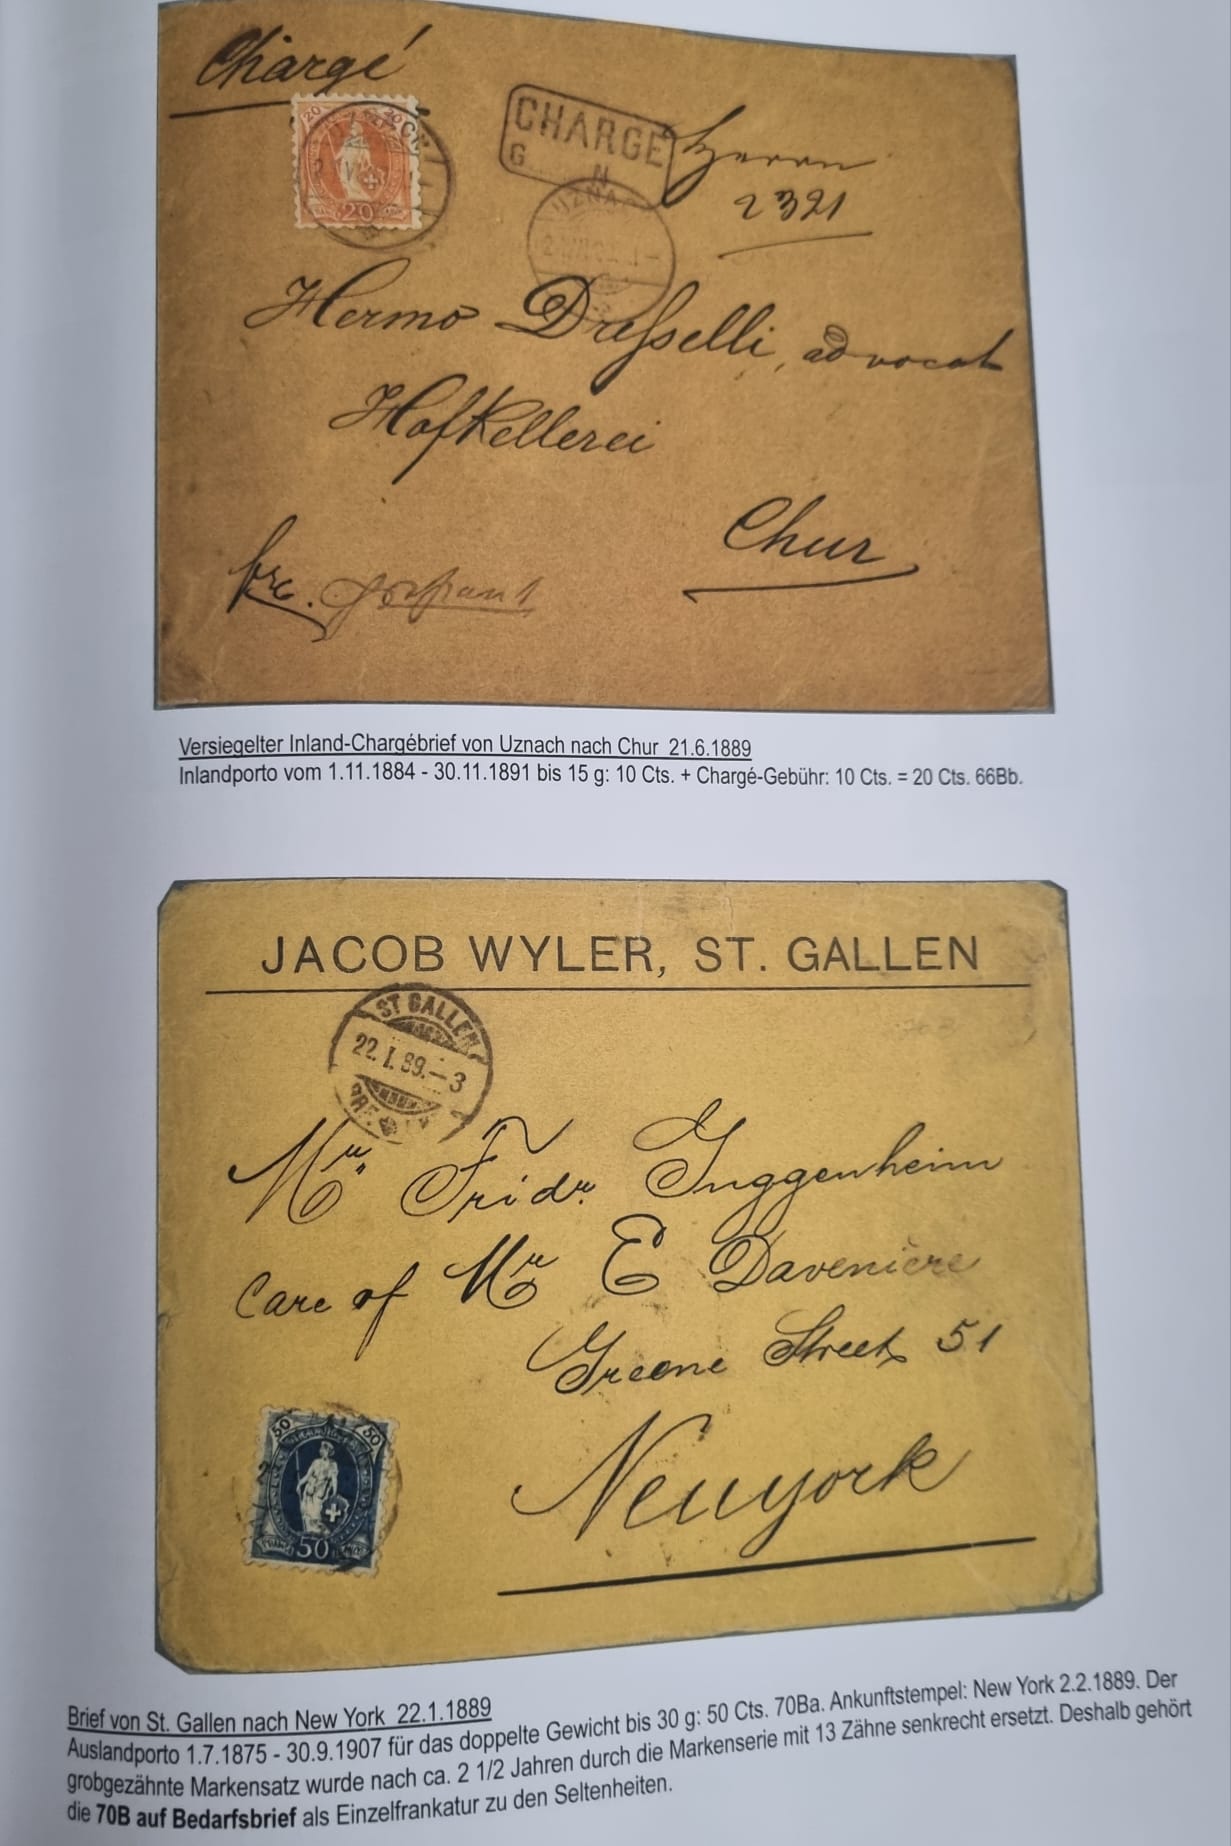 Chargé
20 20
20
CHARGÉ
G N
Herrn
2321
UZNACH
Hermo Drefselli, advocat
Hofkellerei
Chur
frc.
Versiegelter Inland-Chargébrief von Uznach nach Chur 21.6.1889
Inlandporto vom 1.11.1884 - 30.11.1891 bis 15 g: 10 Cts. + Chargé-Gebühr: 10 Cts. = 20 Cts. 66Bb.
JACOB WYLER, ST. GALLEN
ST GALLEN
22.I.89.-3
Mr. Fridr. Guggenheim
Care of Mr E Daveniere
Greene Street 51
Newyork
50 50
FRANCO 50
Brief von St. Gallen nach New York 22.1.1889
Auslandporto 1.7.1875 - 30.9.1907 für das doppelte Gewicht bis 30 g: 50 Cts. 70Ba. Ankunftstempel: New York 2.2.1889. Der
grobgezähnte Markensatz wurde nach ca. 2 1/2 Jahren durch die Markenserie mit 13 Zähne senkrecht ersetzt. Deshalb gehört
die 70B auf Bedarfsbrief als Einzelfrankatur zu den Seltenheiten.